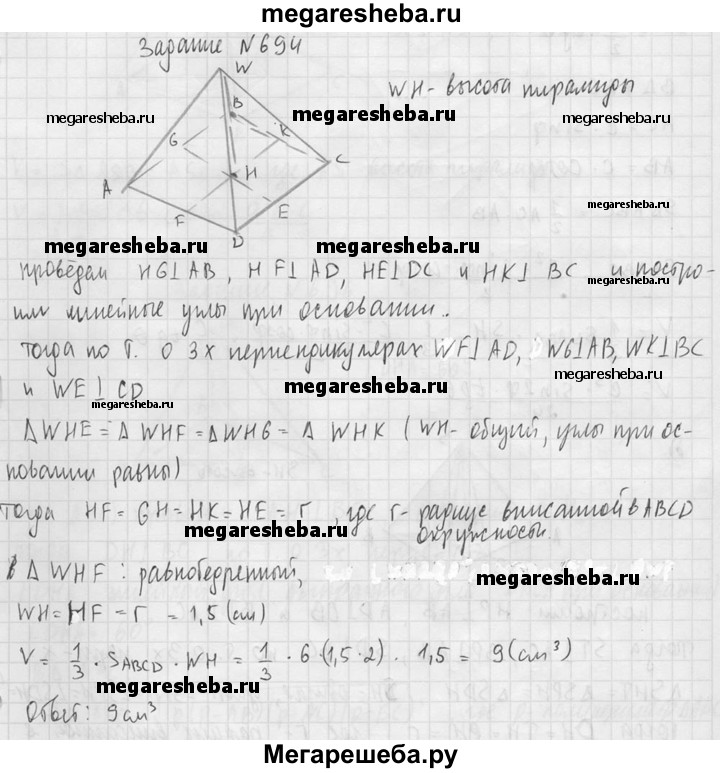 megaresheba.ru
Задание N694
W
WH - высота пирамиды
B
megaresheba.ru
megaresheba.ru
G
K
C
H
A
megaresheba.ru
F
E
D
megaresheba.ru
megaresheba.ru
проведём HG⊥AB, HF⊥AD, HE⊥DC и HK⊥BC и постро-
megaresheba.ru
им линейные углы при основании.
Тогда по т. о 3х перпендикулярах WF⊥AD, WG⊥AB, WK⊥BC
megaresheba.ru
и WE⊥CD
megaresheba.ru
megaresheba.ru
ΔWHE = ΔWHF = ΔWHG = ΔWHK (WH - общий, углы при ос-
новании равны)
Тогда HF = GH = HK = HE = r, где r - радиус вписанной в ABCD
окружности.
megaresheba.ru
в ΔWHF: равнобедренный,
megaresheba.ru
WH = HF = r = 1,5 (см)
V = 1/3 · SABCD · WH = 1/3 · 6 · (1,5 · 2) · 1,5 = 9 (см³)
megaresheba.ru
Ответ: 9 см³
Мегарешеба.ру